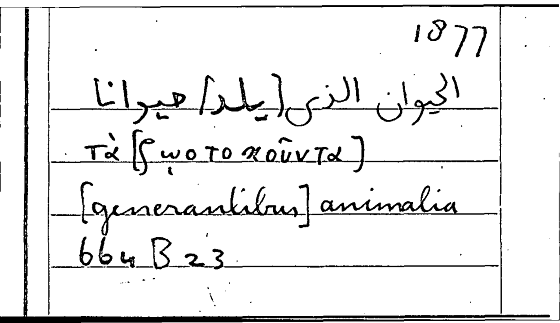 1877
الحيوان الذى [يلد] حيوانا
τὰ [ζῳοτοκοῦντα]
[generantibus] animalia
664 B 23